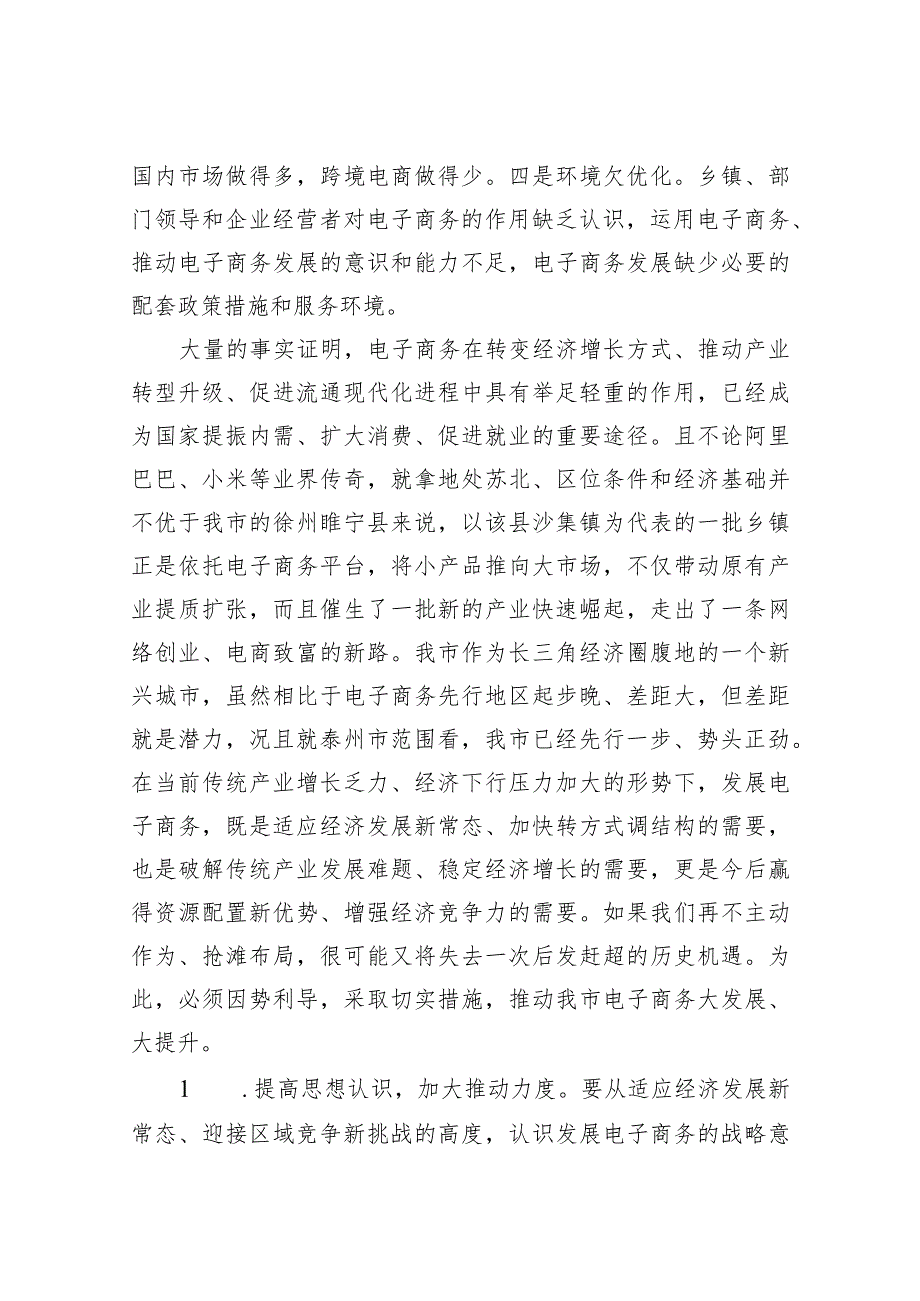 国内市场做得多，跨境电商做得少。四是环境欠优化。乡镇、部
门领导和企业经营者对电子商务的作用缺乏认识，运用电子商务、
推动电子商务发展的意识和能力不足，电子商务发展缺少必要的
配套政策措施和服务环境。
大量的事实证明，电子商务在转变经济增长方式、推动产业
转型升级、促进流通现代化进程中具有举足轻重的作用，已经成
为国家提振内需、扩大消费、促进就业的重要途径。且不论阿里
巴巴、小米等业界传奇，就拿地处苏北、区位条件和经济基础并
不优于我市的徐州睢宁县来说，以该县沙集镇为代表的一批乡镇
正是依托电子商务平台，将小产品推向大市场，不仅带动原有产
业提质扩张，而且催生了一批新的产业快速崛起，走出了一条网
络创业、电商致富的新路。我市作为长三角经济圈腹地的一个新
兴城市，虽然相比于电子商务先行地区起步晚、差距大，但差距
就是潜力，况且就泰州市范围看，我市已经先行一步、势头正劲。
在当前传统产业增长乏力、经济下行压力加大的形势下，发展电
子商务，既是适应经济发展新常态、加快转方式调结构的需要，
也是破解传统产业发展难题、稳定经济增长的需要，更是今后赢
得资源配置新优势、增强经济竞争力的需要。如果我们再不主动
作为、抢滩布局，很可能又将失去一次后发赶超的历史机遇。为
此，必须因势利导，采取切实措施，推动我市电子商务大发展、
大提升。
1 .提高思想认识，加大推动力度。要从适应经济发展新
常态、迎接区域竞争新挑战的高度，认识发展电子商务的战略意